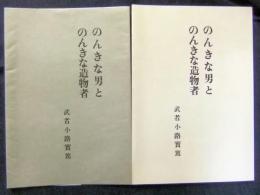 のんきな男と
のんきな造物者
武者小路實篤
のんきな男と
のんきな造物者
武者小路實篤